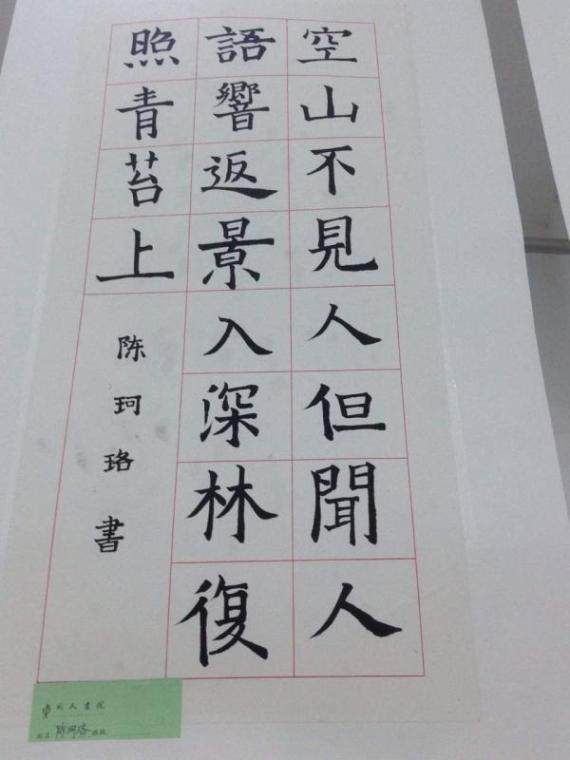 空山不見人但聞人
語響返景入深林復
照青苔上
陈珂珞書